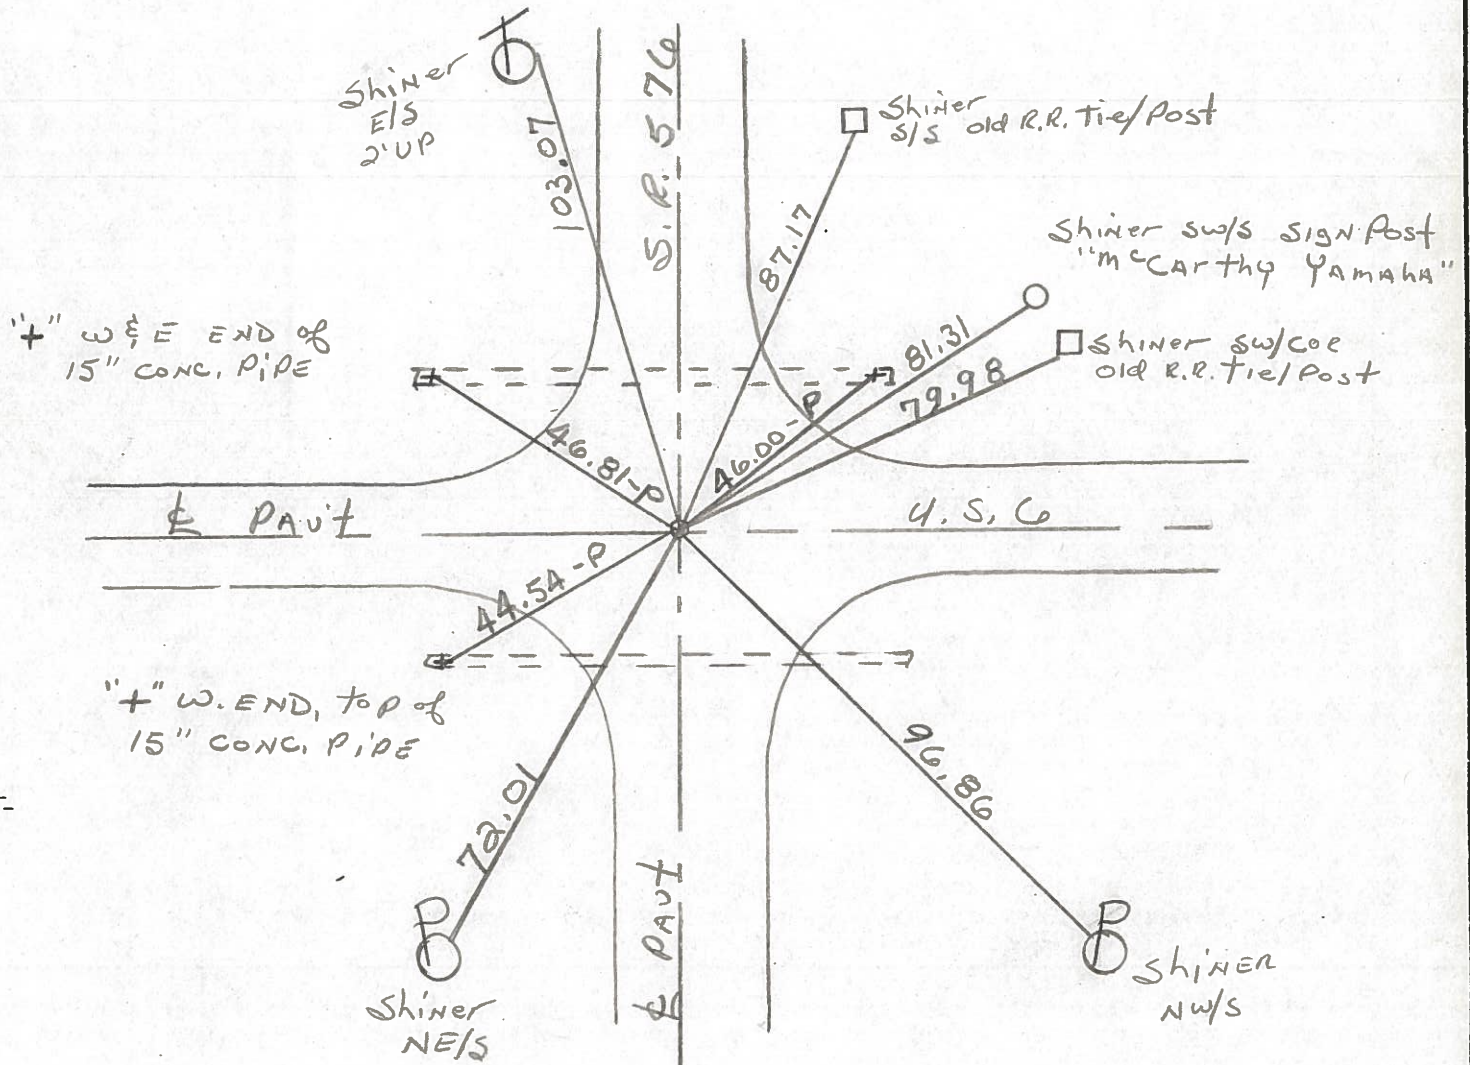 Shiner
E/S
2' UP
103.07
S.R. 576
Shiner
S/S old R.R. Tie/Post
87.17
Shiner SW/S SIGN Post
"McCarthy YAMAHA"
81.31
Shiner SW/COR
old R.R. Tie/Post
79.98
"+" W & E END of
15" CONC. PIPE
46.81-P
46.00-P
℄ PAV't
U.S. 6
44.54-P
"+" W. END, TOP of
15" CONC. PIPE
72.01
96.86
℄ PAVt
P
Shiner
NE/S
P
ShiNER
NW/S